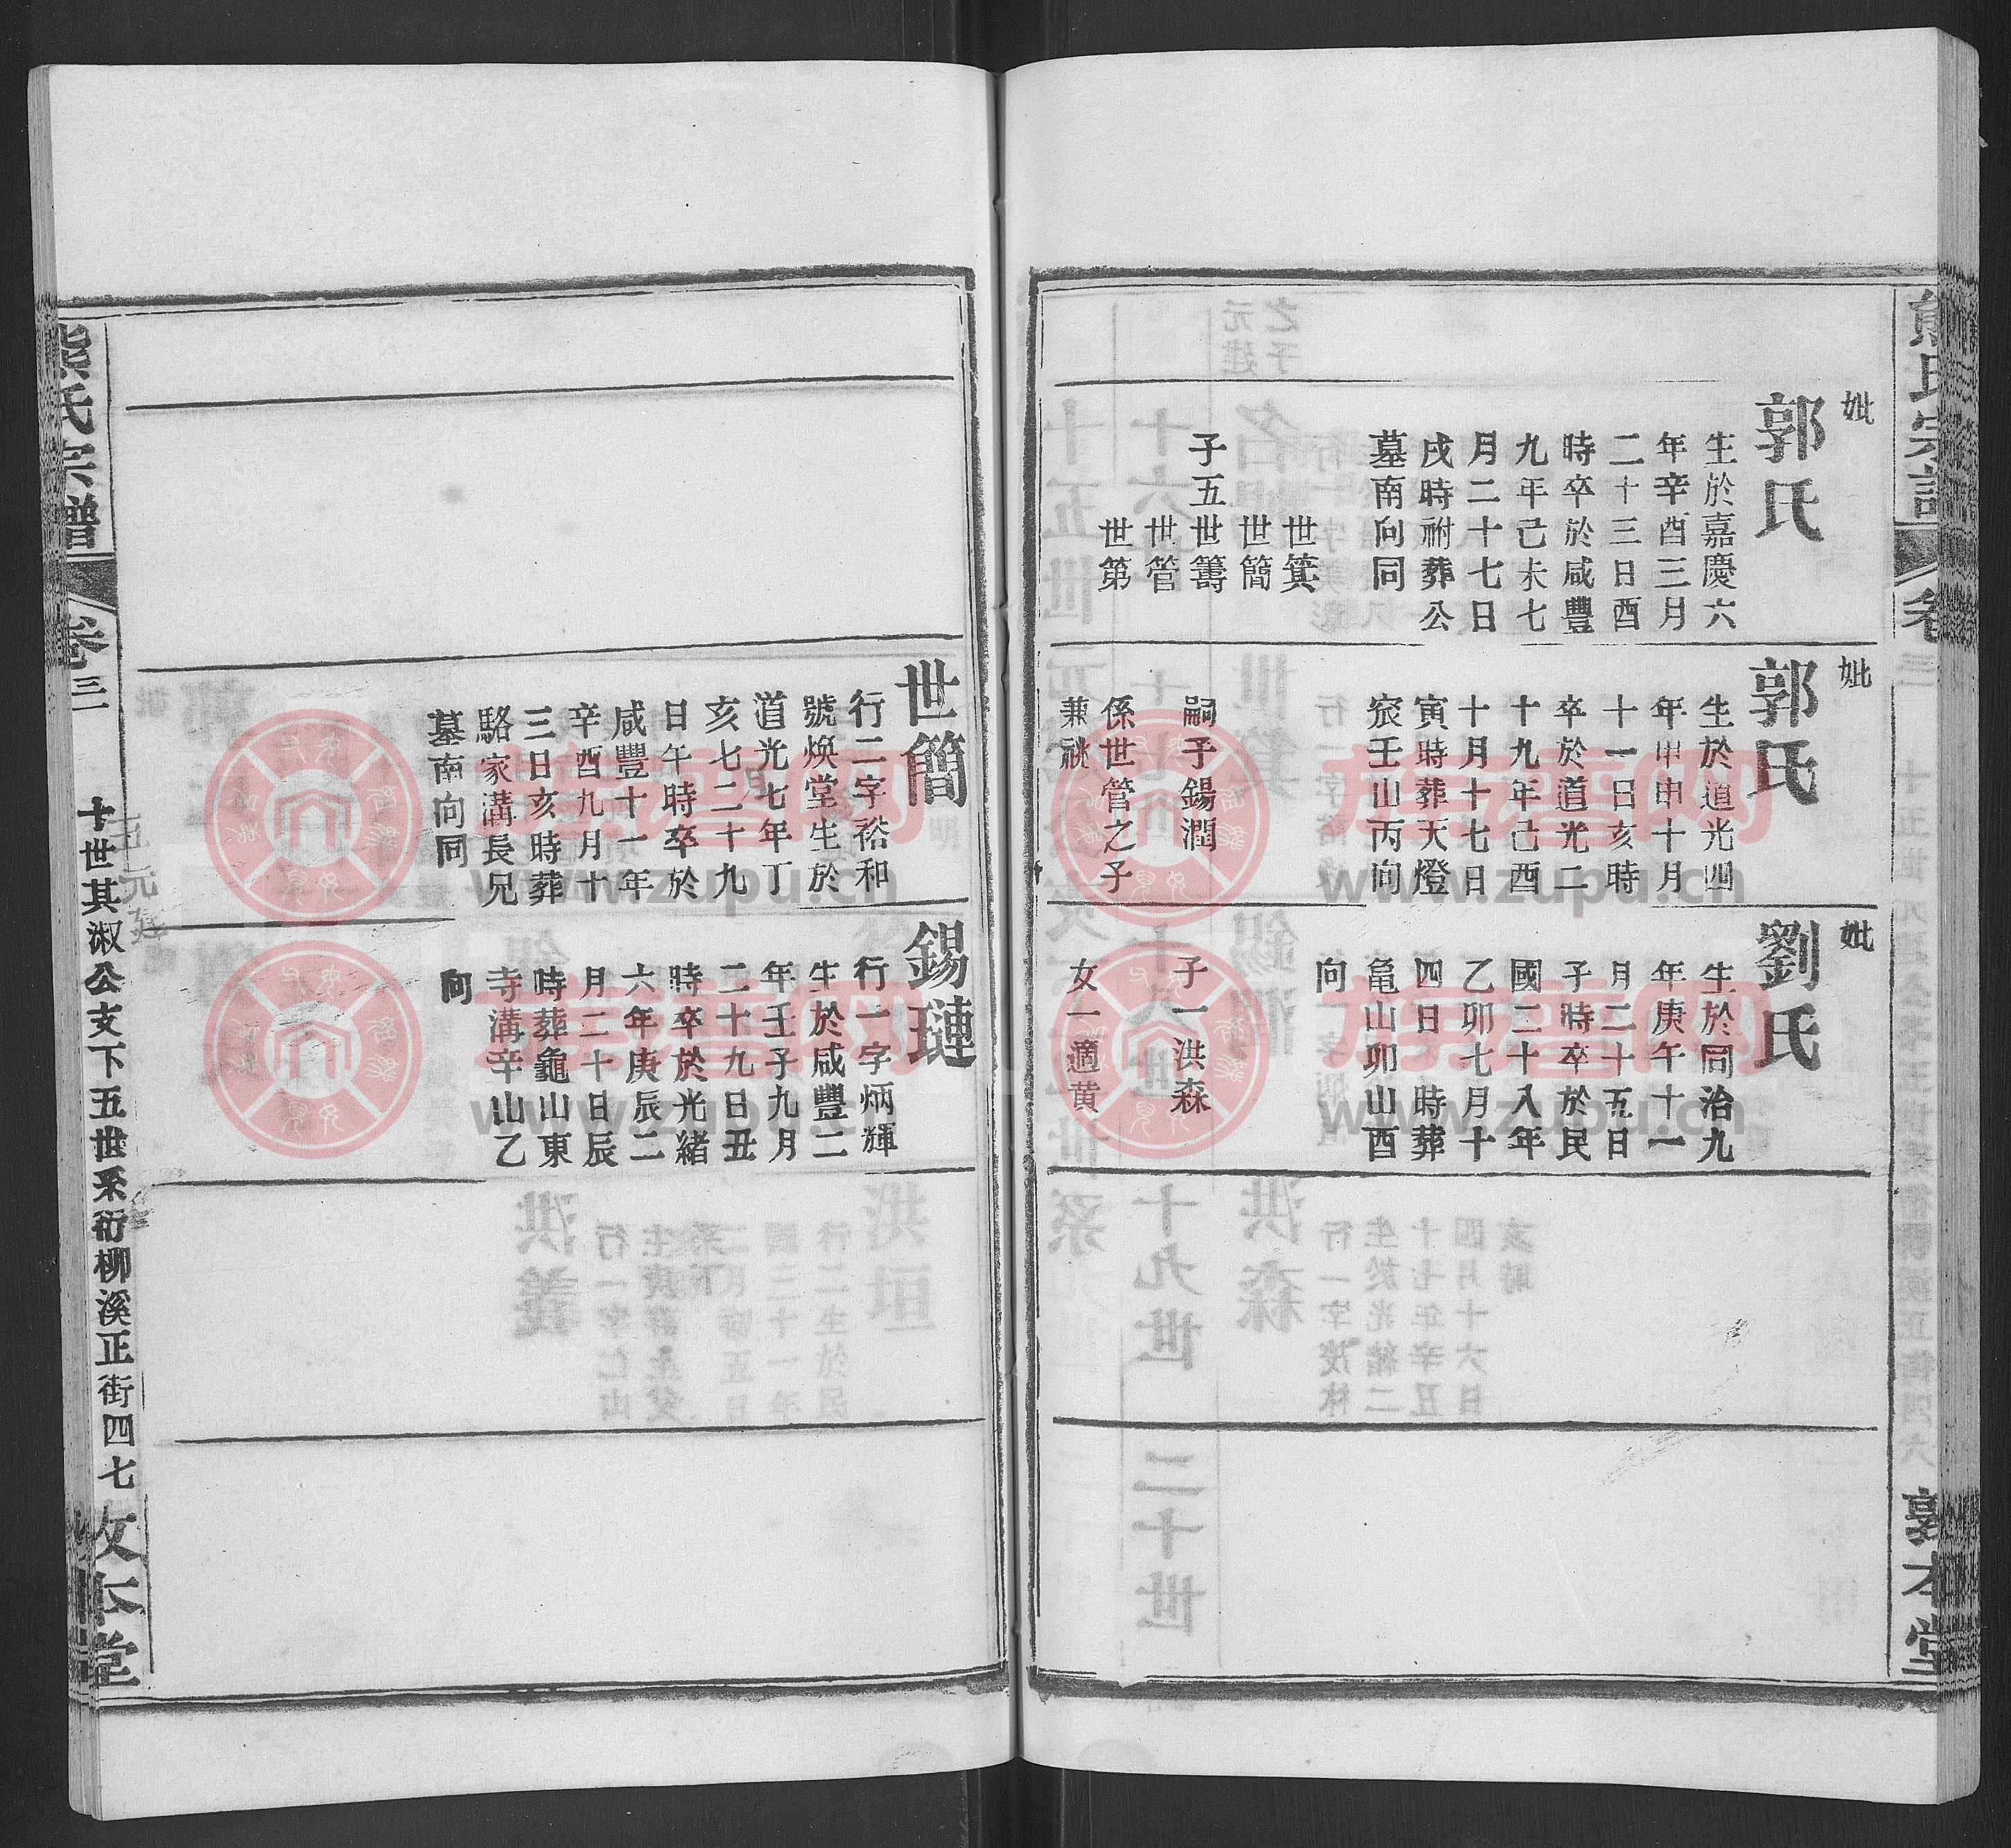 熊氏宗譜
卷三
敦本堂
妣
郭氏
生於嘉慶六
年辛酉三月
二十三日酉
時卒於咸豐
九年己未七
月二十七日
戌時祔葬公
墓南向同
子五
世箕
世簡
世籌
世管
世第
妣
郭氏
生於道光四
年甲申十月
十一日亥時
卒於道光二
十九年己酉
十月十七日
寅時葬天燈
㝮壬山丙向
嗣子錫潤
係世管之子
兼祧
妣
劉氏
生於同治九
年庚午十一
月二十五日
子時卒於民
國二十八年
乙卯七月十
四日 時葬
亀山卯山酉
向
子一洪森
女一適黄
世簡
行二字裕和
號煥堂生於
道光七年丁
亥七二十九
日午時卒於
咸豐十一年
辛酉九月十
三日亥時葬
駱家溝長兄
墓南向同
錫璉
行一字炳輝
生於咸豐二
年壬子九月
二十九日丑
時卒於光緒
六年庚辰二
月二十日辰
時葬龜山東
寺溝辛山乙
向
熊氏宗譜
卷三
十世其淑公支下五世系衍柳溪正街四七
敦本堂
族譜网
www.zupu.cn
族譜网
www.zupu.cn
族譜网
www.zupu.cn
族譜网
www.zupu.cn